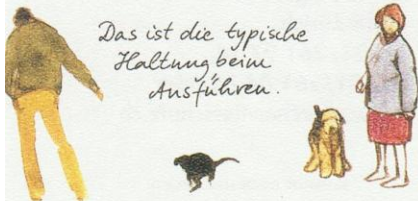 Das ist die typische
Haltung beim
Ausführen.